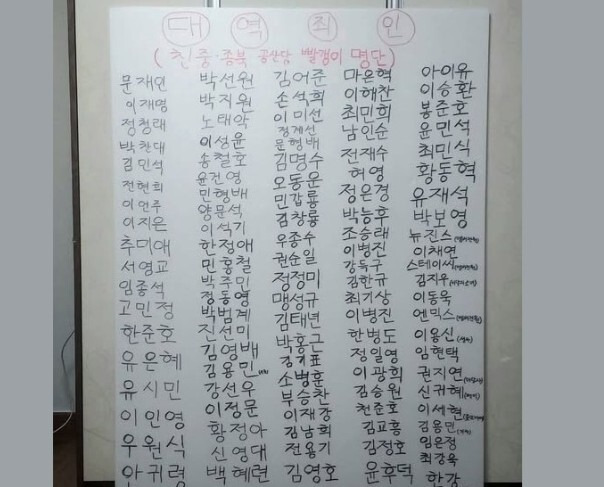 대 역 죄 인
(친중·종북 공산당 빨갱이 명단)
문재인 박선원 김어준 마은혁 아이유
이재명 박지원 손석희 이해찬 이승환
정청래 노태악 이미선 최민희 봉준호
박찬대 이성윤 정계선 남인순 윤민석
김민석 송철호 문형배 전재수 최민식
전현희 윤건영 김명수 허영 황동혁
이언주 민형배 오동운 정은경 유재석
이지은 양문석 민갑룡 박능후 박보영
추미애 이석기 김창룡 조승래 뉴진스
서영교 한정애 우종수 이병진 이채연
임종석 민홍철 권순일 강득구 스테이씨
고민정 박주민 정정미 김한규 김지우
한준호 정동영 맹성규 최기상 이동욱
유은혜 박범계 김태년 이병진 엔믹스
유시민 진선미 박홍근 한병도 이용신
이인영 김영배 김기표 정일영 임현택
우원식 김용민 소병훈 이광희 권지연
안귀령 강선우 부승찬 김승원 신규혜
이정문 이재강 천준호 이세현
황정아 김남희 김교흥 김용민
신영대 전용기 김정호 임은정
백혜련 김영호 윤후덕 최강욱
한강